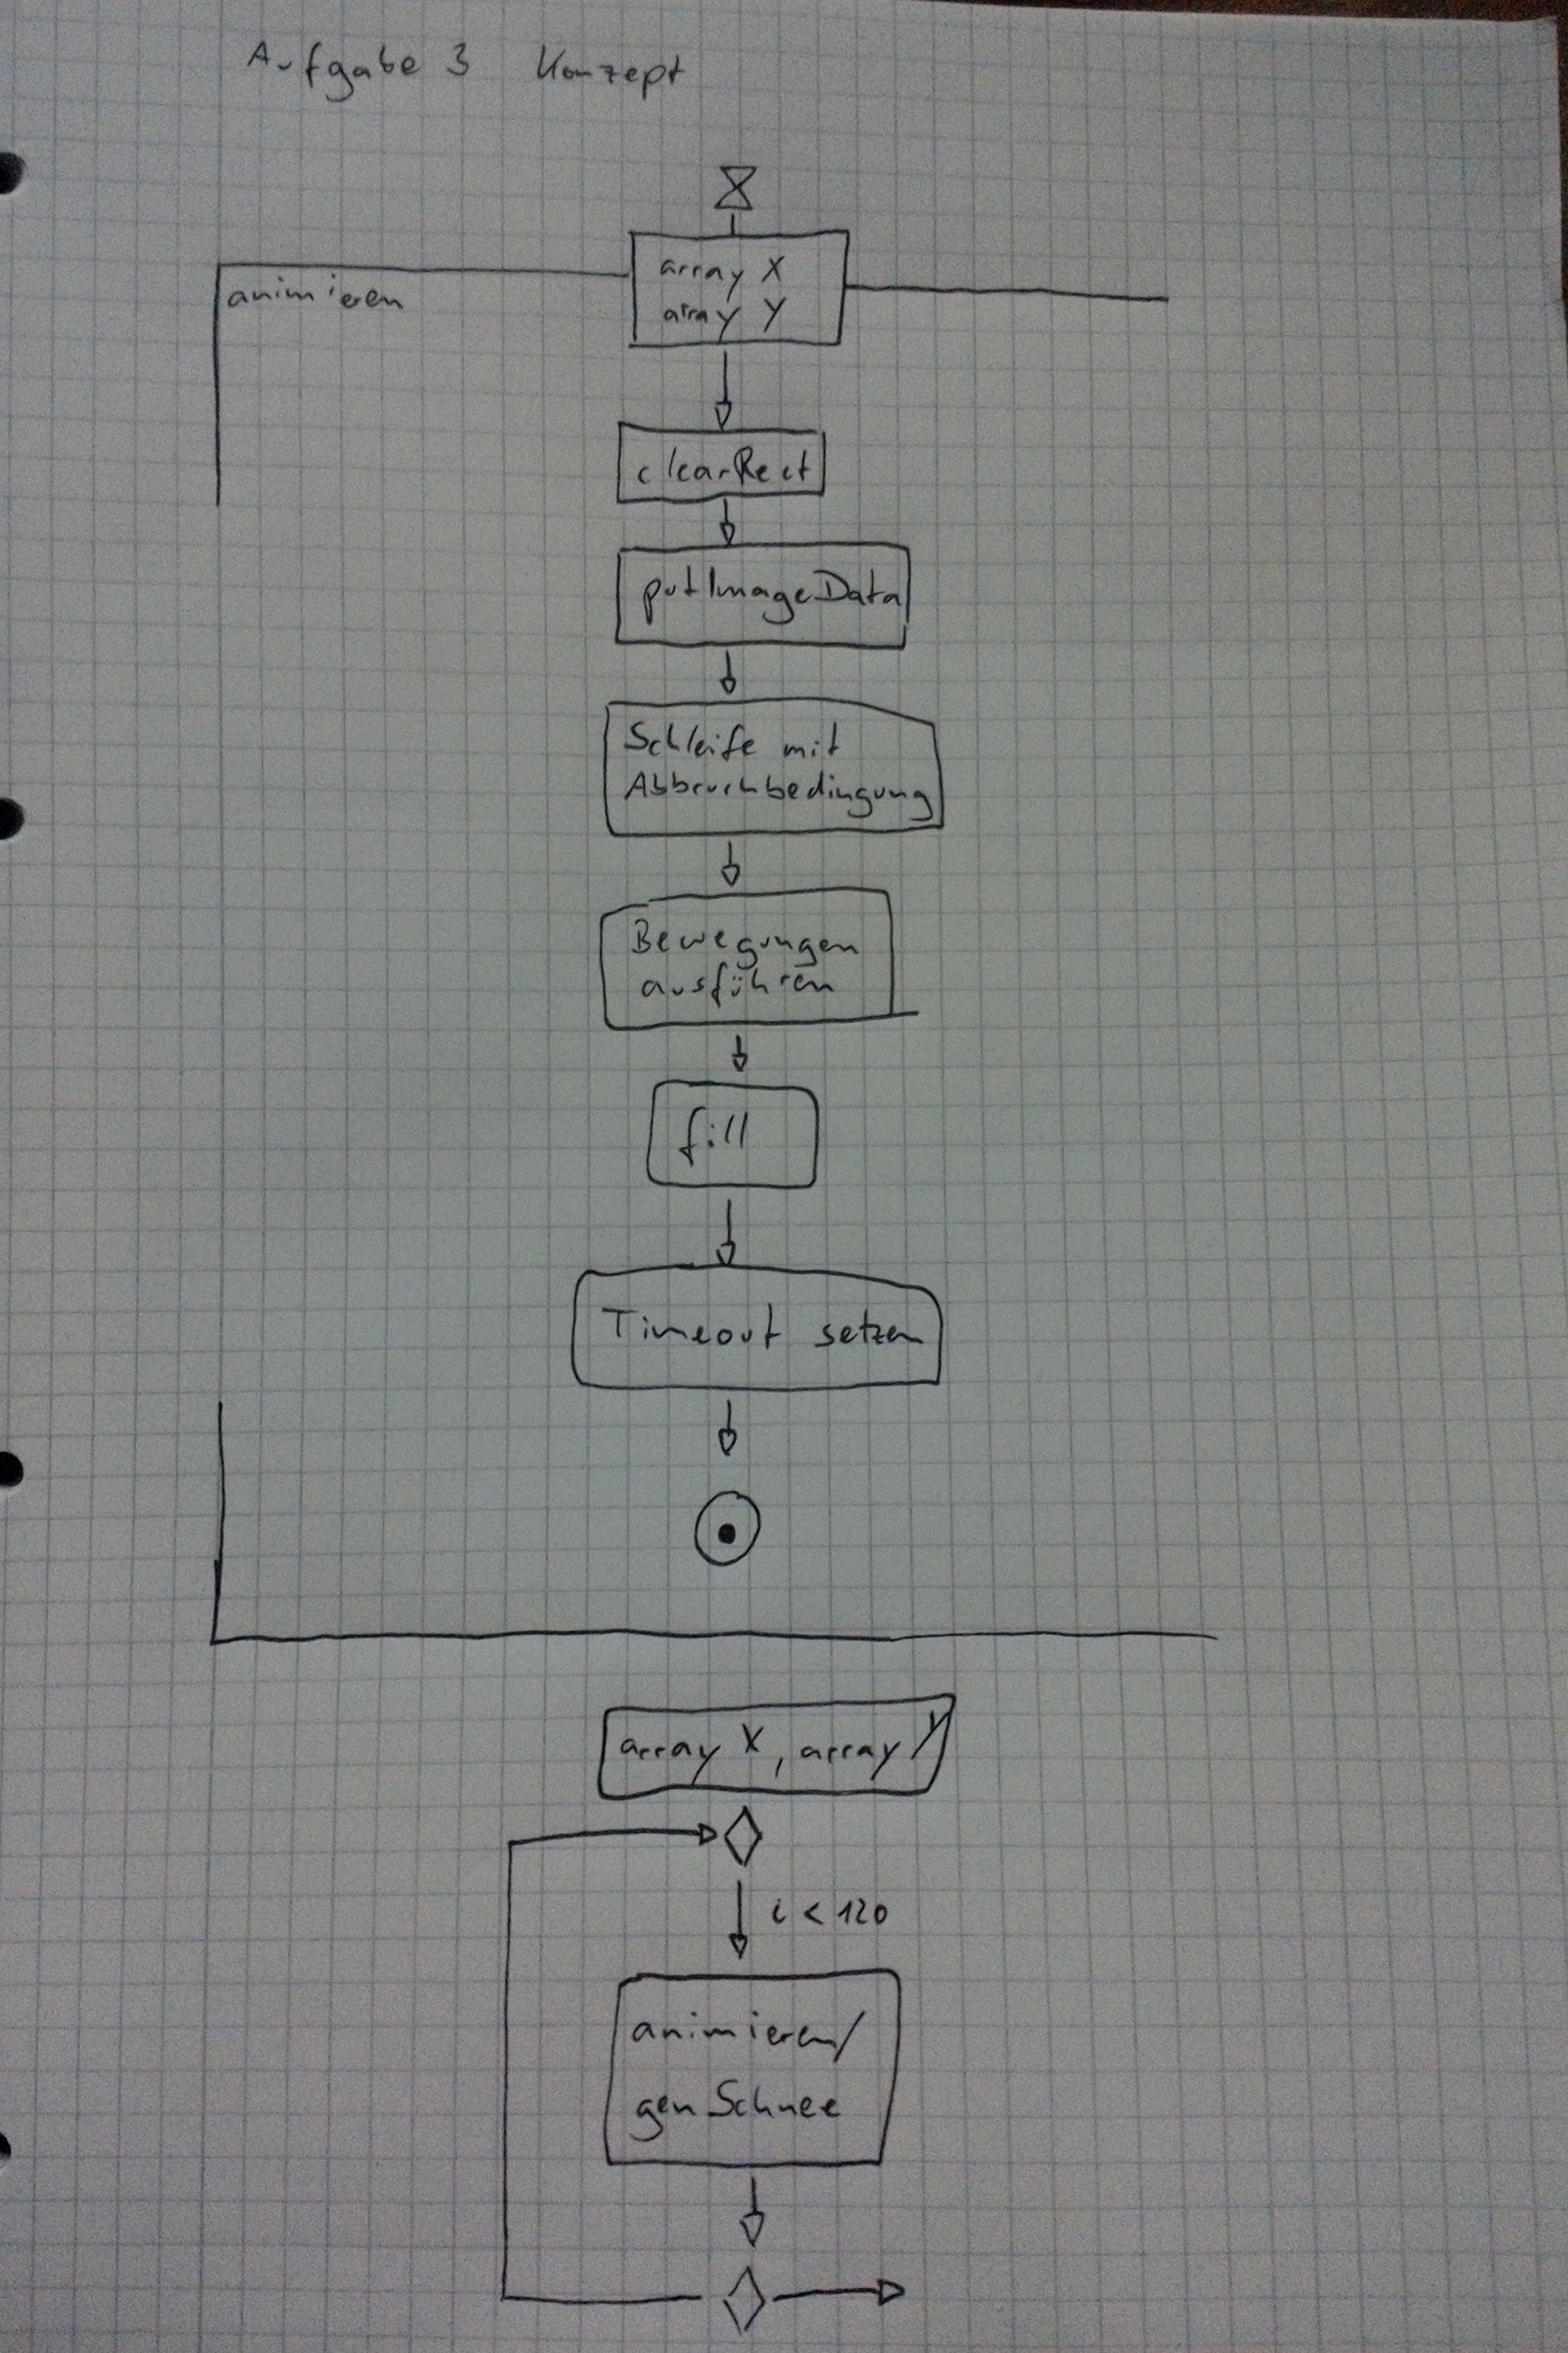 Aufgabe 3 Konzept
array X
array Y
animieren
clearRect
putImageData
Schleife mit
Abbruchbedingung
Bewegungen
ausführen
fill
Timeout setzen
array X, array Y
i < 120
animieren/
genSchnee